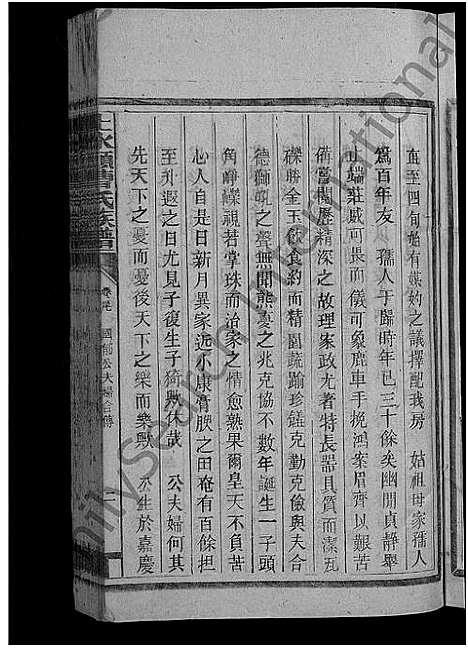 直至四旬始有媒妁之議擇配我房　姑祖母家孺人
為百年友　孺人于歸時年已三十餘矣幽閒貞靜舉
止端莊威可畏而儀可象鹿車手挽鴻案眉齊以艱苦
備嘗閱歷精深之故理家政尤者特長器具質而潔瓦
礫勝金玉飲食約而精園蔬踰珍饈克勤克儉與夫合
德獅吼之聲無聞熊夢之兆克協不數年誕生一子頭
角崢嶸視若掌珠而治家之情愈熟果爾皇天不負苦
心人自是日新月異家近小康膏腴之田奄有百餘担
至升遐之日尤見子復生子猗歟休哉　公夫婦何其
先天下之憂而憂後天下之樂而樂歟　亦生於嘉慶
上水頭曹氏族譜
國郁公夫婦合傳
FamilySearch International